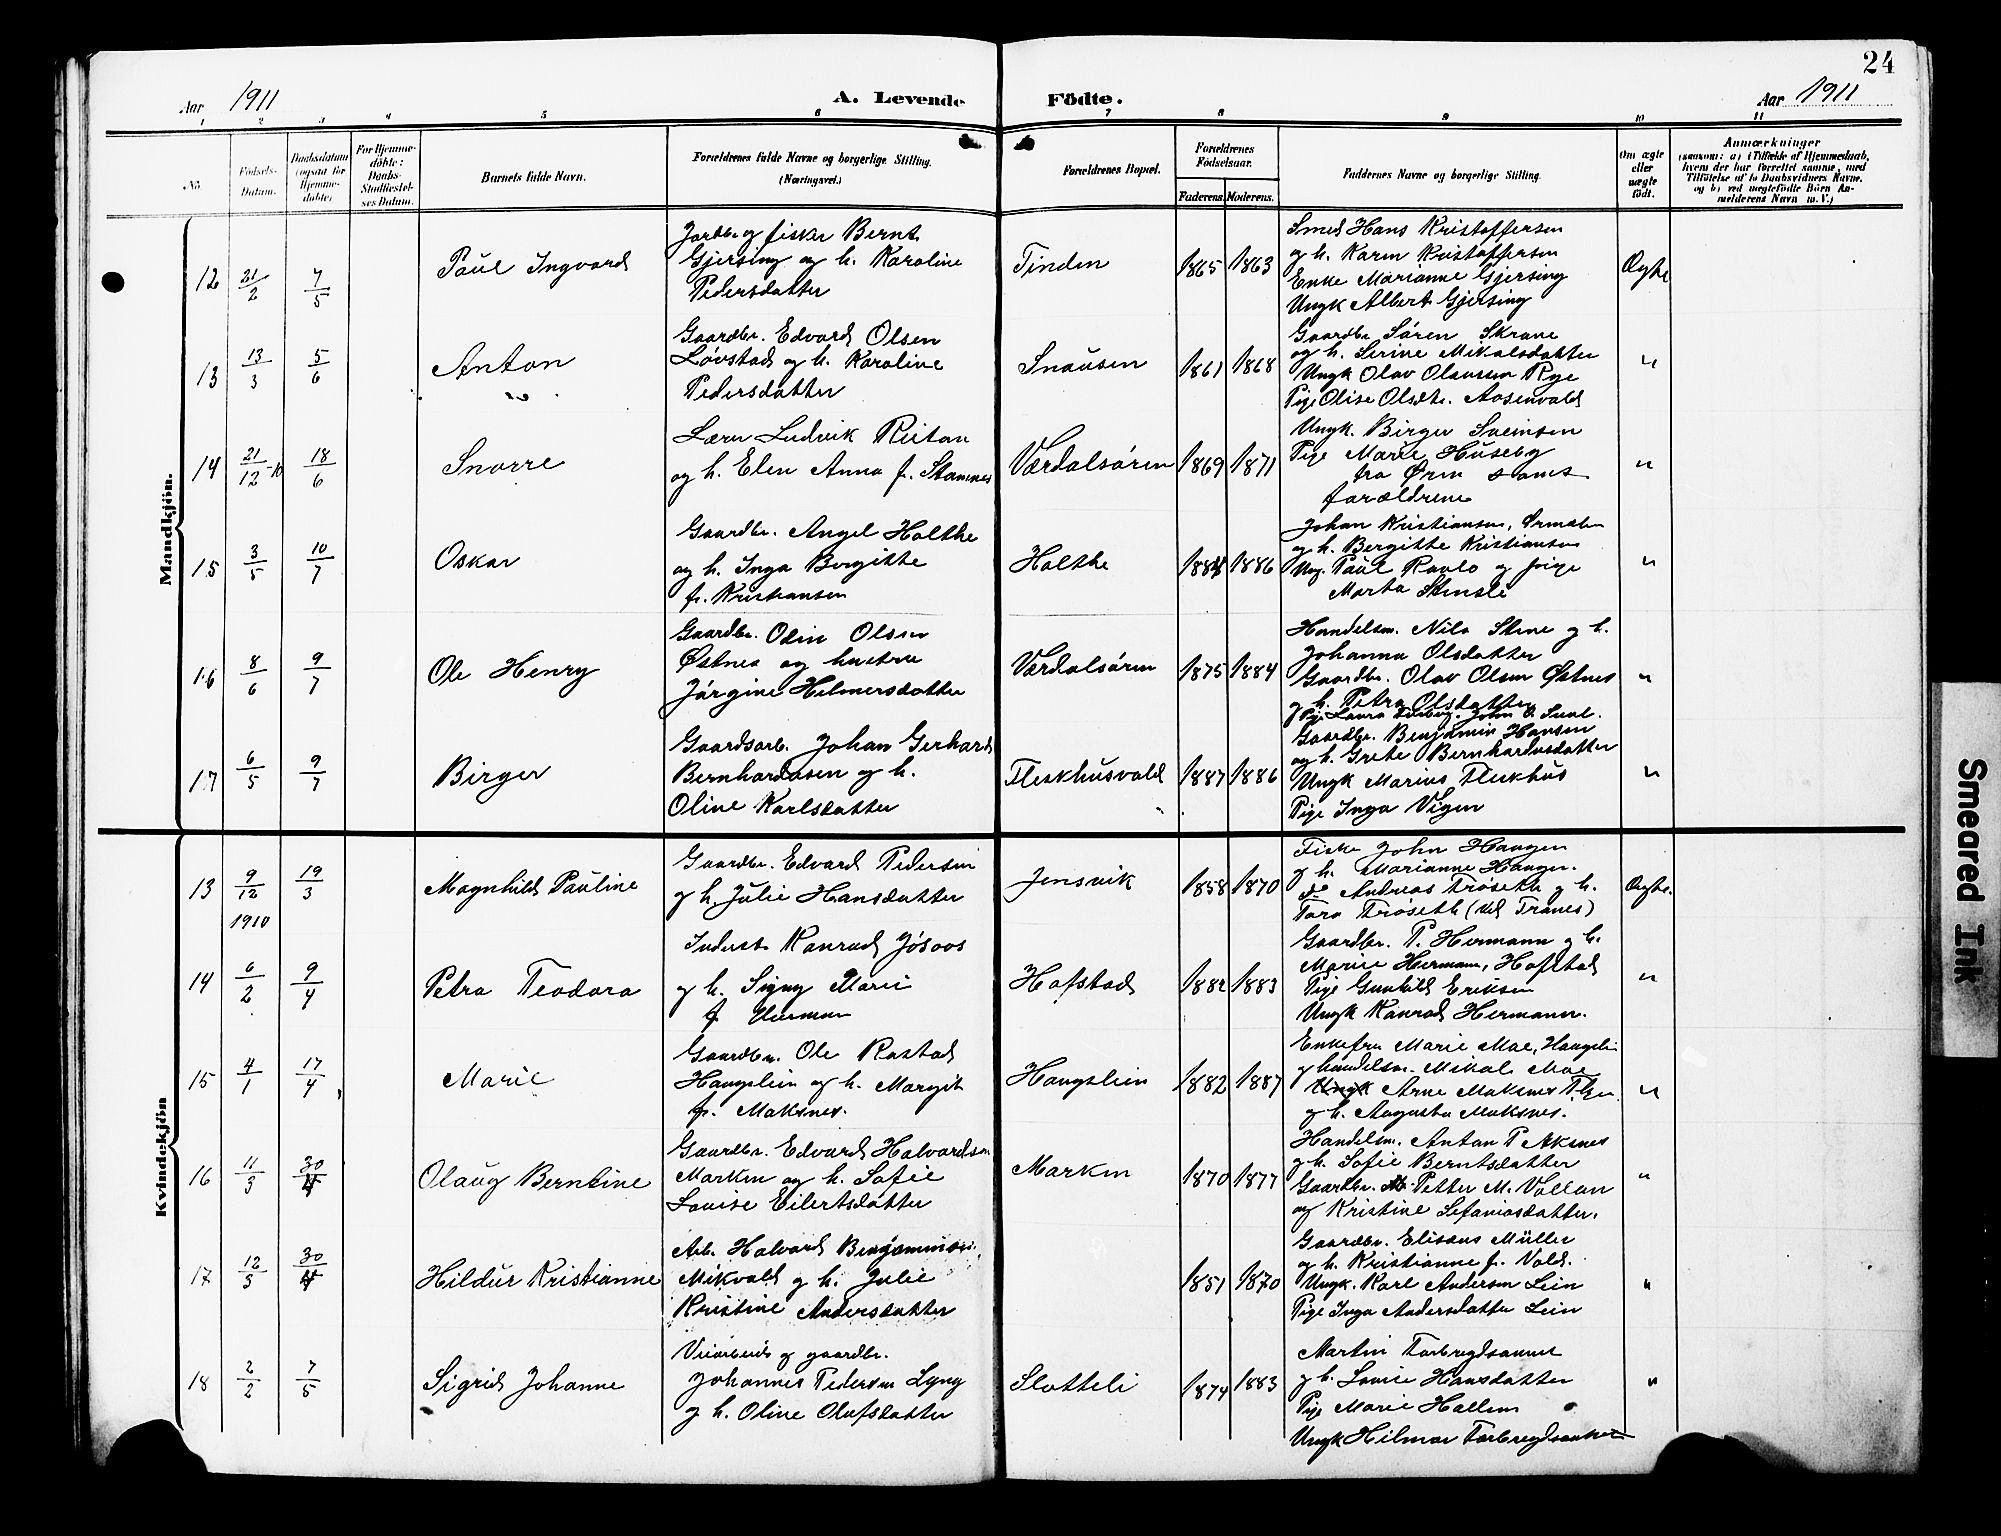 24
Aar 1911
A. Levende Födte.
Aar 1911
1 2 3 4 5 6 7 8 9 10 11
No.
Födsels-
Datum.
Daabsdatum
(ogsaa for
Hjemme-
døbte)
For Hjemme-
døbte:
Daabs-
Stadfæstel-
ses Datum.
Barnets fulde Navn.
Forældrenes fulde Navne og borgerlige Stilling.
(Næringsvei.)
Forældrenes Bopæl.
Forældrenes
Födselsaar.
Faderens. Moderens.
Faddernes Navne og borgerlige Stilling.
Om ægte
eller
uægte
født.
Anmærkninger
(saasom: a) i Tilfælde af Hjemmedaab,
hvem der har forrettet samme, med
Tilføielse af to Daabsvidners Navne,
og b) ved uægtefødte Børn An-
melderens Navn m. V.)
Mandkjön.
12 21/2 7/5 Paul Ingvard
Jordbr. og fisker Bernt
Gjersing og h. Karoline
Pedersdatter
Tinden 1865 1863
Smed Hans Kristoffersen
og h. Karen Kristoffersen
Enke Marianne Gjersing
Ungk Albert Gjersing
Ægte
13 13/3 5/6 Anton
Gaardbr. Edvard Olsen
Løvstad og h. Karoline
Pedersdatter
Snausen 1861 1868
Gaardbr. Søren Skrove
og h. Serine Mikalsdatter
Ungk Olav Olaussen Rye
Pige Olise Olsdtr. Aasenvald
"
14 21/12-10 18/6 Snorre
Lærer Ludvik Ristan
og h. Elen Anna f. Stamnes
Værdalsøren 1869 1871
Ungk. Birger Sveinsen
Pige Marie Huseby
fra Øren samt
forældrene
"
15 3/5 10/7 Oskar
Gaardbr. Angel Holthe
og h. Inga Bergitte
f. Kristiansen
Holthe 1886
Johan Kristiansen, Ørmelen
og h. Bergitte Kristiansen
Ung. Paul Ravlo og pige
Marta Stensli
"
16 8/6 9/7 Ole Henry
Gaardbr. Odin Olsen
Østnes og hustru
Jørgine Helmersdatter
Værdalsøren 1875 1884
Handelsm. Nils Stene og h.
Johanna Olsdatter
Gaardbr. Olav Olsen Østnes
g h. Petra Olsdatter
Pige Laura
Gaardbr. Benjamin Hansen
"
17 6/5 9/7 Birger
Gaardsarb. Johan Gerhard
Bernhardsen og h.
Oline Karlsdatter
Fleskhusvald 1887 1886
og h. Grete Bernhardusdatter
Ungk Marius Fleskhus
Pige Inga Vigen
"
Kvindekjön
13 9/12 1910 19/3 Magnhild Pauline
Gaardbr. Edvard Pedersen
g h. Julie Hansdatter
Jensvik 1858 1870
Fisker John Haugen
g h. Marianne Haugen.
do Andreas Trøseth g h.
Tora Trøseth (ved Tranes)
Ægte.
14 6/2 9/4 Petra Teodora
Inderst Konrad Jøsaas
g h. Signy Marie
f. Herman
Hofstad 1882 1883
Gaardbr. P. Hermann g h.
Marie Hermann, Hofstad
Pige Gunhild Eriksen
Ungk Konrad Hermann.
"
15 4/1 17/4 Marie
Gaardbr. Ole Rostad
Haugslein og h. Margit
f. Maksnes.
Haugslein 1882 1887
Enkefru Marie Moe, Haugslein
g handelsm. Mikal Moe
Ungk Arne Maksnes
g h. Augusta Maksnes.
"
16 11/3 30/4 Olaug Berntine
Gaardbr. Edvard Halvardsen
Marken og h. Sofie
Lovise Eilertsdatter
Marken 1870 1877
Handelsm. Anton P Aksnes
g h. Sofie Berntsdatter
Gaardbr. Petter M. Vollan
og Kristine Sefaniasdatter.
"
17 12/3 30/4 Hildur Kristianne
Arb. Halvard Benjaminsen
Mikvald g h. Julie
Kristine Andersdatter
1851 1870
Gaardbr. Elisæus Müller
og h. Kristianne f. Vald.
Ungk. Karl Andersen Lein
Pige Inga Andersdatter Lein
"
18 2/2 7/5 Sigrid Johanne
Veiarbeid. g gaardbr.
Johannes Pedersen Lyng
g h. Oline Olufsdatter
Slotteli 1874 1883
Martin Forbregdsaunet
g h. Lovise Hansdatter
Pige Marie Hallem
Ungk Hilmar Forbregdsaunet
"
Smeared Ink